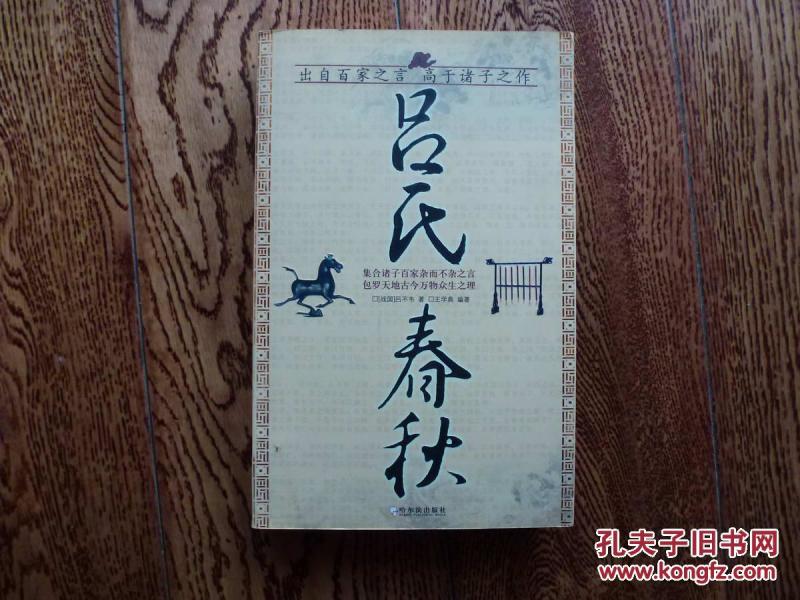 出自百家之言 高于诸子之作
吕氏
春秋
集合诸子百家杂而不杂之言
包罗天地古今万物众生之理
□[战国]吕不韦 著 □王学典 编著
哈尔滨出版社
孔夫子旧书网
www.kongfz.com